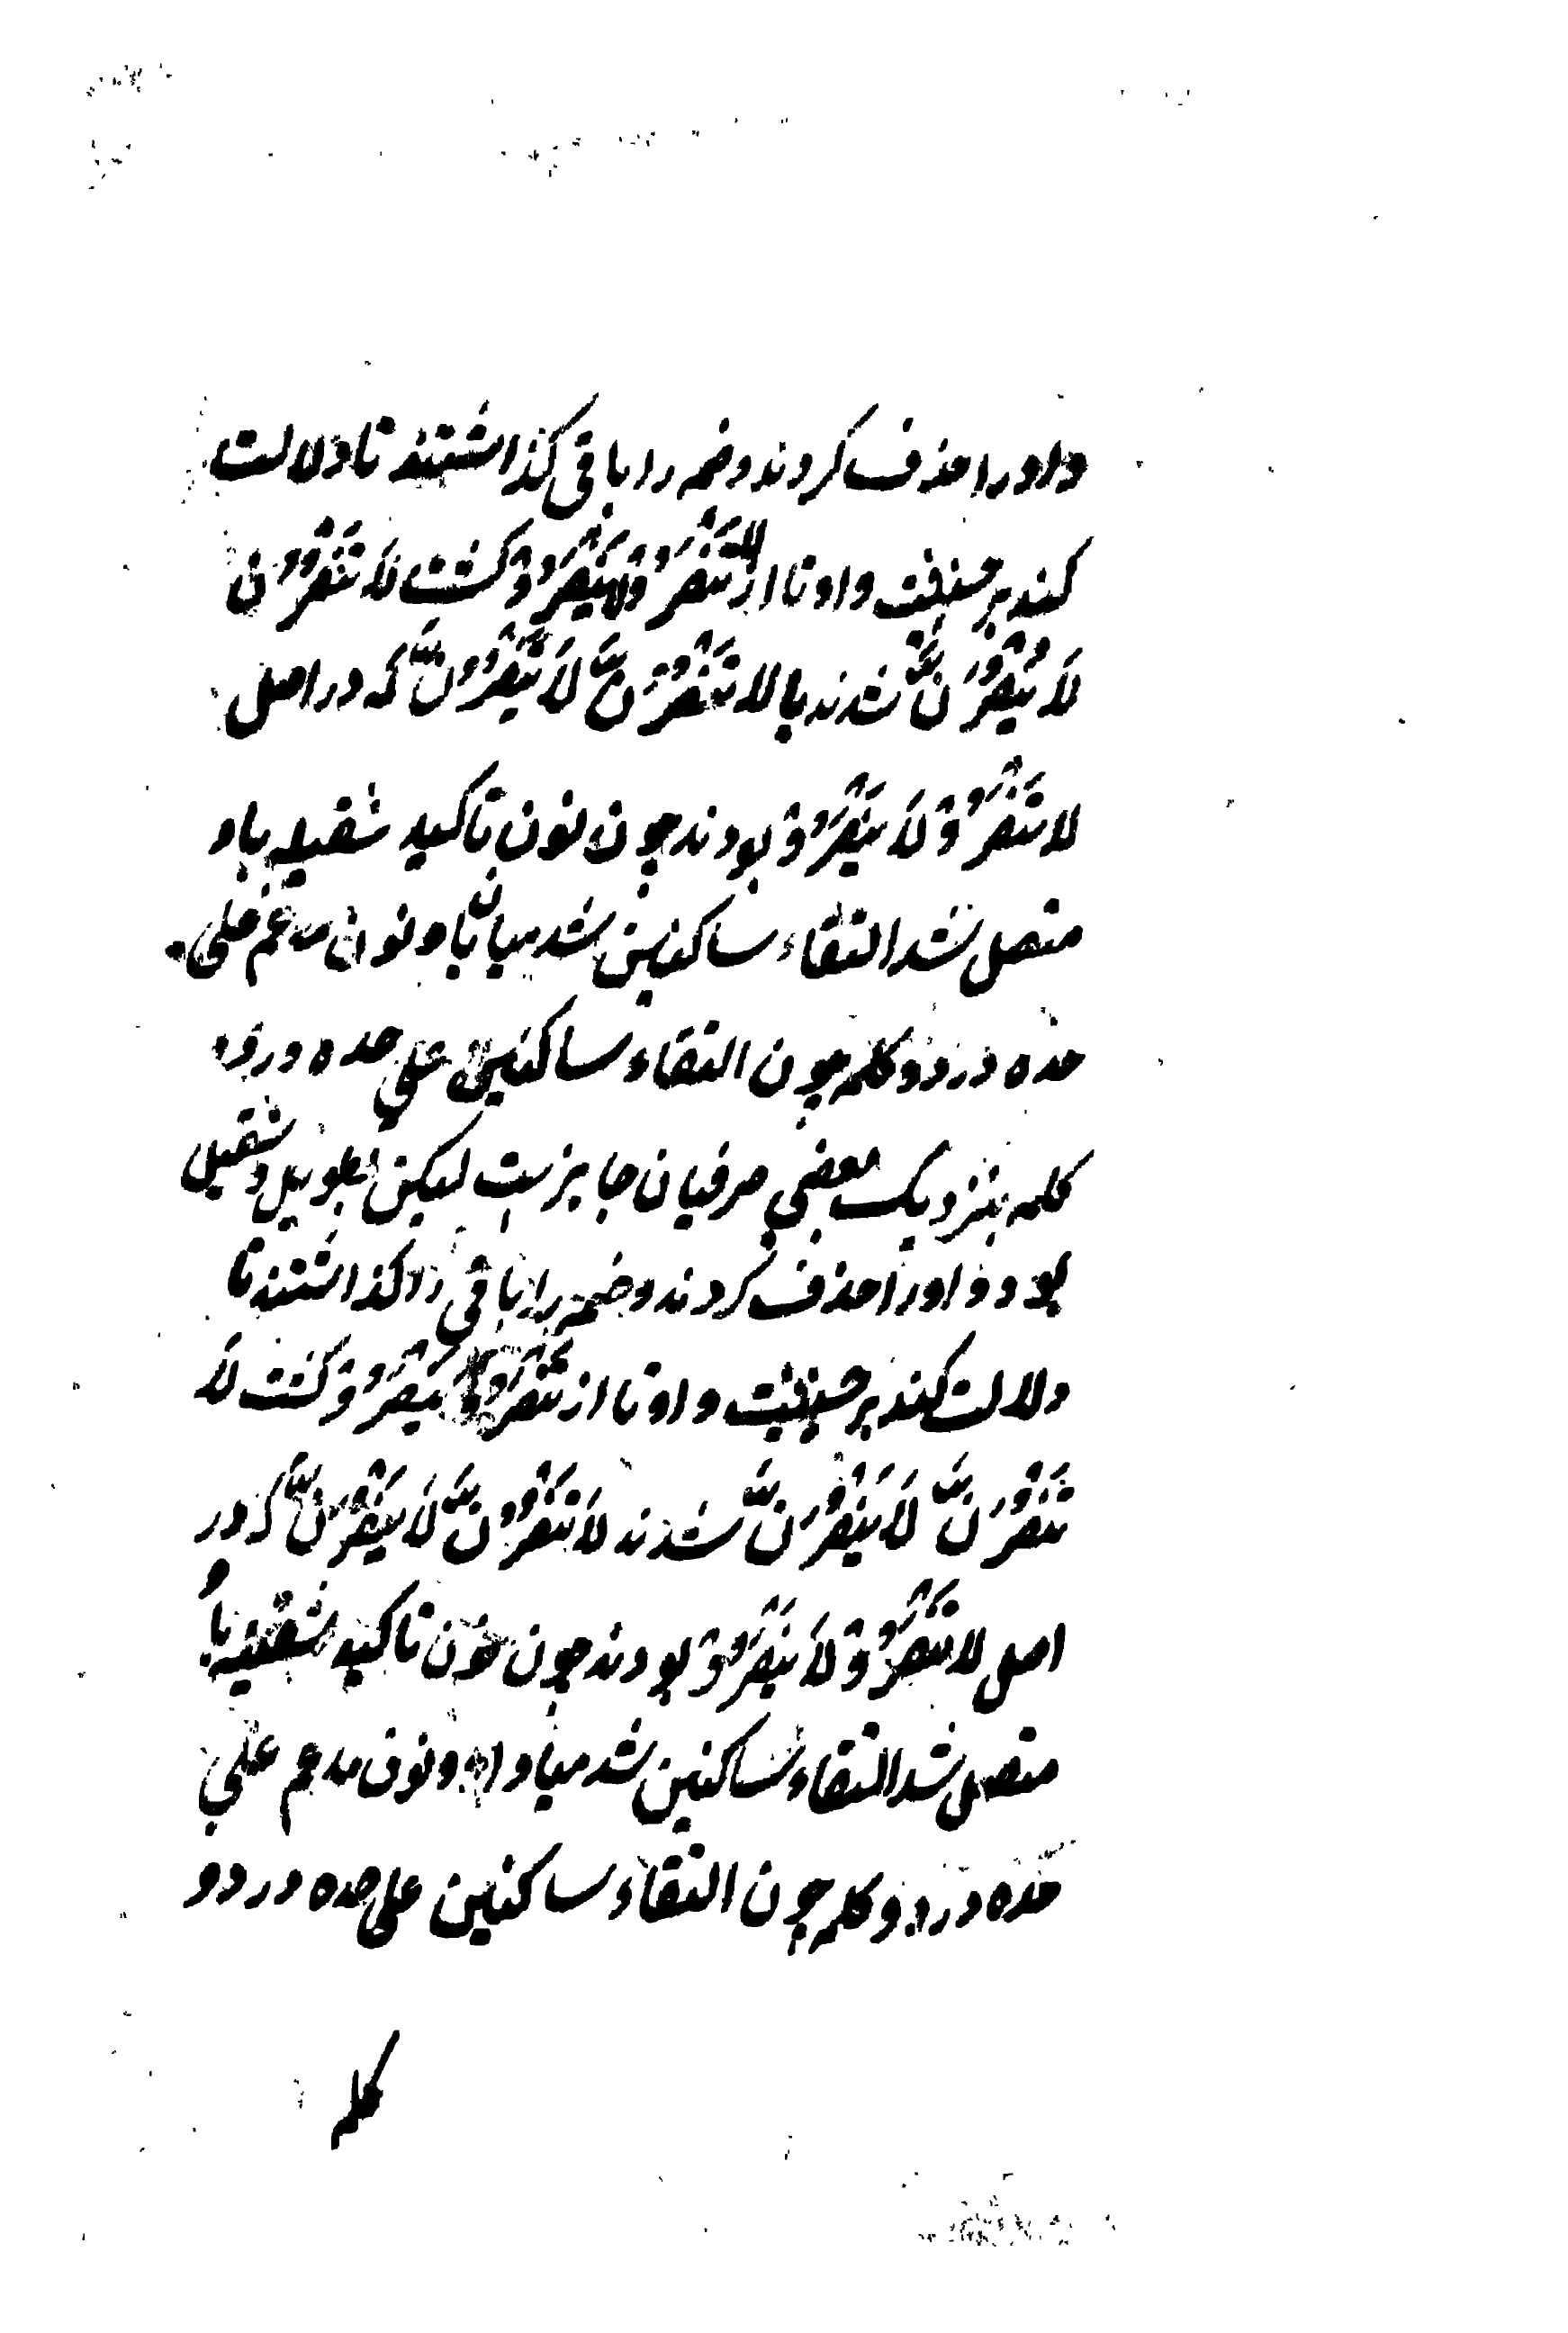 واورا حذف کردند وضمه را باقی کذاشتند تا دلالت
کند بر حذفیت واو تا از لَا تَنْصُرُوْ لَا یَنْصُرُوْ کشت لَا تَنْصُرُنَّ
لَا یَنْصُرُنَّ شدند یا لا تَنْصُرُنَّ لَا یَنْصُرُنَّ که در اصل
لا تَنْصُرُوْ لَا یَنْصُرُوْ بودند چون نون تاکید ثقیله باو
متصل شد التقاء ساکنین شد میان باو ونون مدغم علی
حده در دو کلمه چون التقاء ساکنین علی حده در دو
کلمه بنزدیک بعضی صرفیان جایزست لیکن طویل وثقیل
بود واورا حذف کردند وضمه را باقی را کذاشتند تا
دلالت کند بر حذفیت واو تا از تَنْصُرُوْ یَنْصُرُوْ کشت لَا
تَنْصُرُنَّ لَا یَنْصُرُنَّ شدند لَا تَنْصُرُنَّ لَا یَنْصُرُنَّ که در
اصل لا تَنْصُرُوْ لَا یَنْصُرُوْ بودند چون نون تاکید ثقیله باو
متصل شد التقاء ساکنین شد میا واو ونون مدغم علی
حده در دو کلمه چون التقاء ساکنین علی حده در دو
کلمه